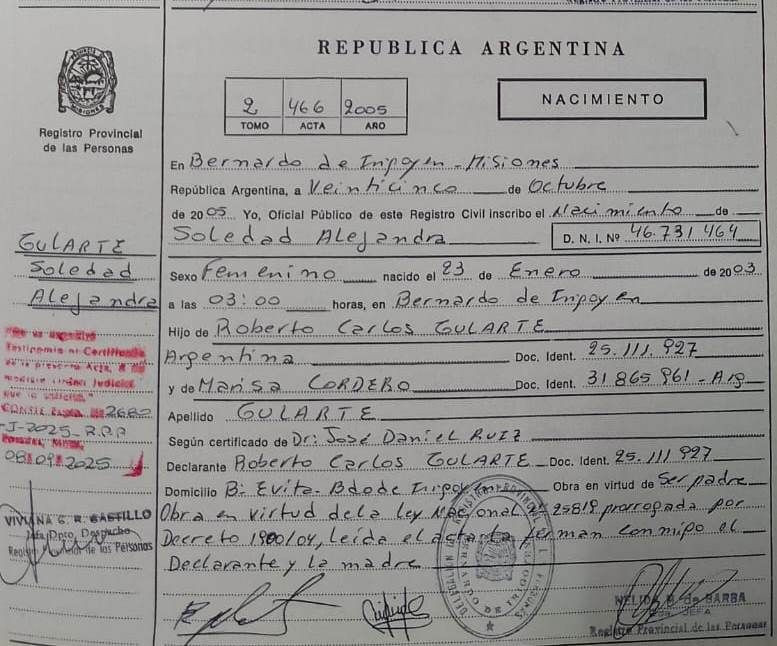 REPUBLICA ARGENTINA
Registro Provincial
de las Personas
2 466 2005
TOMO ACTA AÑO
NACIMIENTO
En Bernardo de Irigoyen - Misiones
República Argentina, a Veinticinco de Octubre
de 2005 Yo, Oficial Público de este Registro Civil inscribo el Nacimiento de
Soledad Alejandra D. N. I. Nº 46.731 464
Sexo Femenino nacido el 23 de Enero de 2003
a las 03:00 horas, en Bernardo de Irigoyen
Hijo de Roberto Carlos GULARTE
Argentina Doc. Ident. 25.111.927
y de Marisa CORDERO Doc. Ident. 31 865 961 - Arg
Apellido GULARTE
Según certificado de Dr: José Daniel RUIZ
Declarante Roberto Carlos GULARTE Doc. Ident. 25.111 927
Domicilio B: Evita - Bdo de Irigoyen Obra en virtud de Ser padre
Obra en virtud de la ley Nacional Nº 25819 prorrogada por
Decreto 1900/04, leída el acta la firman conmigo el
Declarante y la madre
GULARTE
Soledad
Alejandra
Testimonio ni Certificado
de la presente Acta, a
judicial
que lo solicite."
2682
-J-2025-R.P.P
08 09 2025
VIVIANA G. R. CASTILLO
Jefa Dpto. Despacho
Registro Provincial de las Personas
NELIDA B. de BARBA
JEFA
Registro Provincial de las Personas